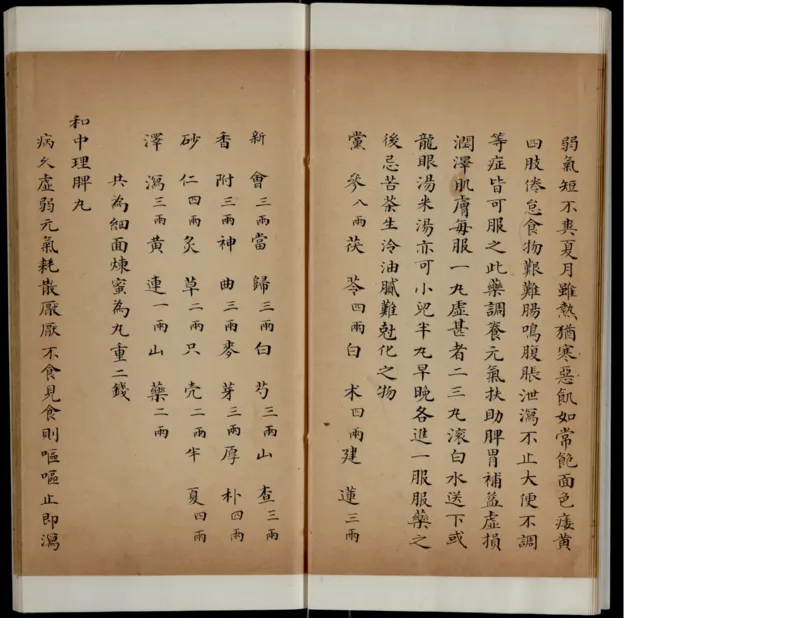 弱氣短不爽夏月雖熱猶寒惡飢如常飽面色痿黃
四肢倦怠食物艱難腸鳴腹脹泄瀉不止大便不調
等症皆可服之此藥調養元氣扶助脾胃補益虛損
潤澤肌膚每服一丸虛甚者二三丸滚白水送下或
龍眼湯米湯亦可小兒半丸早晚各進一服服藥之
後忌苦茶生冷油膩難尅化之物
黨參八兩茯苓四兩白术四兩建蓮三兩
新會三兩當歸三兩白芍三兩山查三兩
香附三兩神曲三兩麥芽三兩厚朴四兩
砂仁四兩炙草二兩只壳二兩半夏四兩
澤瀉三兩黃連一兩山藥二兩
共為細面煉蜜為丸重二錢
和中理脾丸
病久虛弱元氣耗散厭厭不食見食則嘔嘔止即瀉